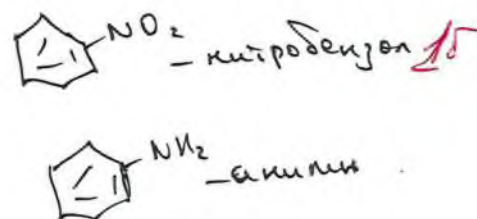 NO₂ – нитробензол 1б
NH₂ – анилин